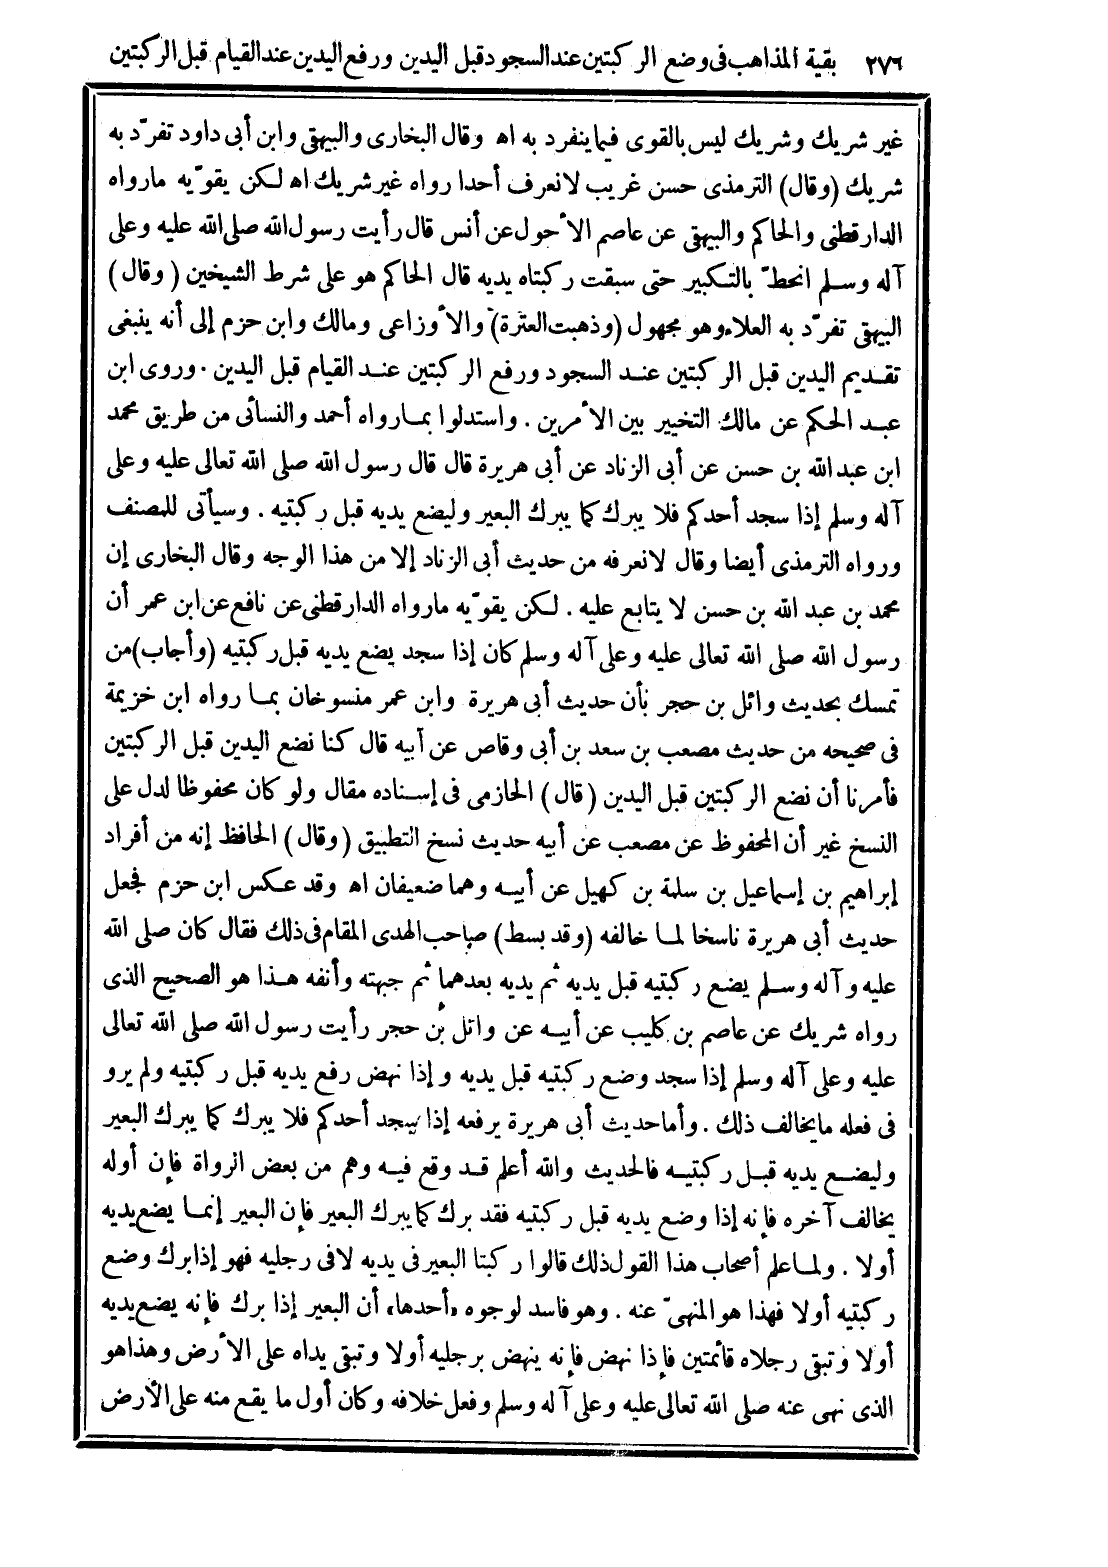 ٢٧٦ بقية المذاهب فى وضع الركبتين عند السجود قبل اليدين ورفع اليدين عند القيام قبل الركبتين
غير شريك وشريك ليس بالقوى فيما ينفرد به اه وقال البخارى والبيهقى وابن أبى داود تفرّد به
شريك (وقال) الترمذى حسن غريب لانعرف أحدا رواه غير شريك اه لكن يقوّيه مارواه
الدارقطنى والحاكم والبيهقى عن عاصم الأحول عن أنس قال رأيت رسول الله صلى الله عليه وعلى
آله وسلم انحطّ بالتكبير حتى سبقت ركبتاه يديه قال الحاكم هو على شرط الشيخين (وقال)
البيهقى تفرّد به العلاء وهو مجهول (وذهبت العترة) والأوزاعى ومالك وابن حزم إلى أنه ينبغى
تقديم اليدين قبل الركبتين عند السجود ورفع الركبتين عند القيام قبل اليدين . وروى ابن
عبد الحكم عن مالك التخيير بين الأمرين . واستدلوا بما رواه أحمد والنسائى من طريق محمد
ابن عبد الله بن حسن عن أبى الزناد عن أبى هريرة قال قال رسول الله صلى الله تعالى عليه وعلى
آله وسلم إذا سجد أحدكم فلا يبرك كما يبرك البعير وليضع يديه قبل ركبتيه . وسيأتى للمصنف
ورواه الترمذى أيضا وقال لانعرفه من حديث أبى الزناد إلا من هذا الوجه وقال البخارى إن
محمد بن عبد الله بن حسن لا يتابع عليه . لكن يقوّيه مارواه الدارقطنى عن نافع عن ابن عمر أن
رسول الله صلى الله تعالى عليه وعلى آله وسلم كان إذا سجد يضع يديه قبل ركبتيه (وأجاب) من
تمسك بحديث وائل بن حجر بأن حديث أبى هريرة وابن عمر منسوخان بما رواه ابن خزيمة
فى صحيحه من حديث مصعب بن سعد بن أبى وقاص عن أبيه قال كنا نضع اليدين قبل الركبتين
فأمرنا أن نضع الركبتين قبل اليدين (قال) الحازمى فى إسناده مقال ولو كان محفوظا لدل على
النسخ غير أن المحفوظ عن مصعب عن أبيه حديث نسخ التطبيق (وقال) الحافظ إنه من أفراد
إبراهيم بن إسماعيل بن سلمة بن كهيل عن أبيه وهما ضعيفان اه وقد عكس ابن حزم فجعل
حديث أبى هريرة ناسخا لما خالفه (وقد بسط) صاحب الهدى المقام فى ذلك فقال كان صلى الله
عليه وآله وسلم يضع ركبتيه قبل يديه ثم يديه بعدهما ثم جبهته وأنفه هذا هو الصحيح الذى
رواه شريك عن عاصم بن كليب عن أبيه عن وائل بن حجر رأيت رسول الله صلى الله تعالى
عليه وعلى آله وسلم إذا سجد وضع ركبتيه قبل يديه وإذا نهض رفع يديه قبل ركبتيه ولم يرو
فى فعله مايخالف ذلك . وأما حديث أبى هريرة يرفعه إذا سجد أحدكم فلا يبرك كما يبرك البعير
وليضع يديه قبل ركبتيه فالحديث والله أعلم قد وقع فيه وهم من بعض الرواة فإن أوله
يخالف آخره فإنه إذا وضع يديه قبل ركبتيه فقد برك كما يبرك البعير فإن البعير إنما يضع يديه
أولا . ولما علم أصحاب هذا القول ذلك قالوا ركبتا البعير فى يديه لافى رجليه فهو إذا برك وضع
ركبتيه أولا فهذا هو المنهىّ عنه . وهو فاسد لوجوه «أحدها» أن البعير إذا برك فإنه يضع يديه
أولا وتبقى رجلاه قائمتين فإذا نهض فإنه ينهض برجليه أولا وتبقى يداه على الأرض وهذا هو
الذى نهى عنه صلى الله تعالى عليه وعلى آله وسلم وفعل خلافه وكان أول ما يقع منه على الأرض